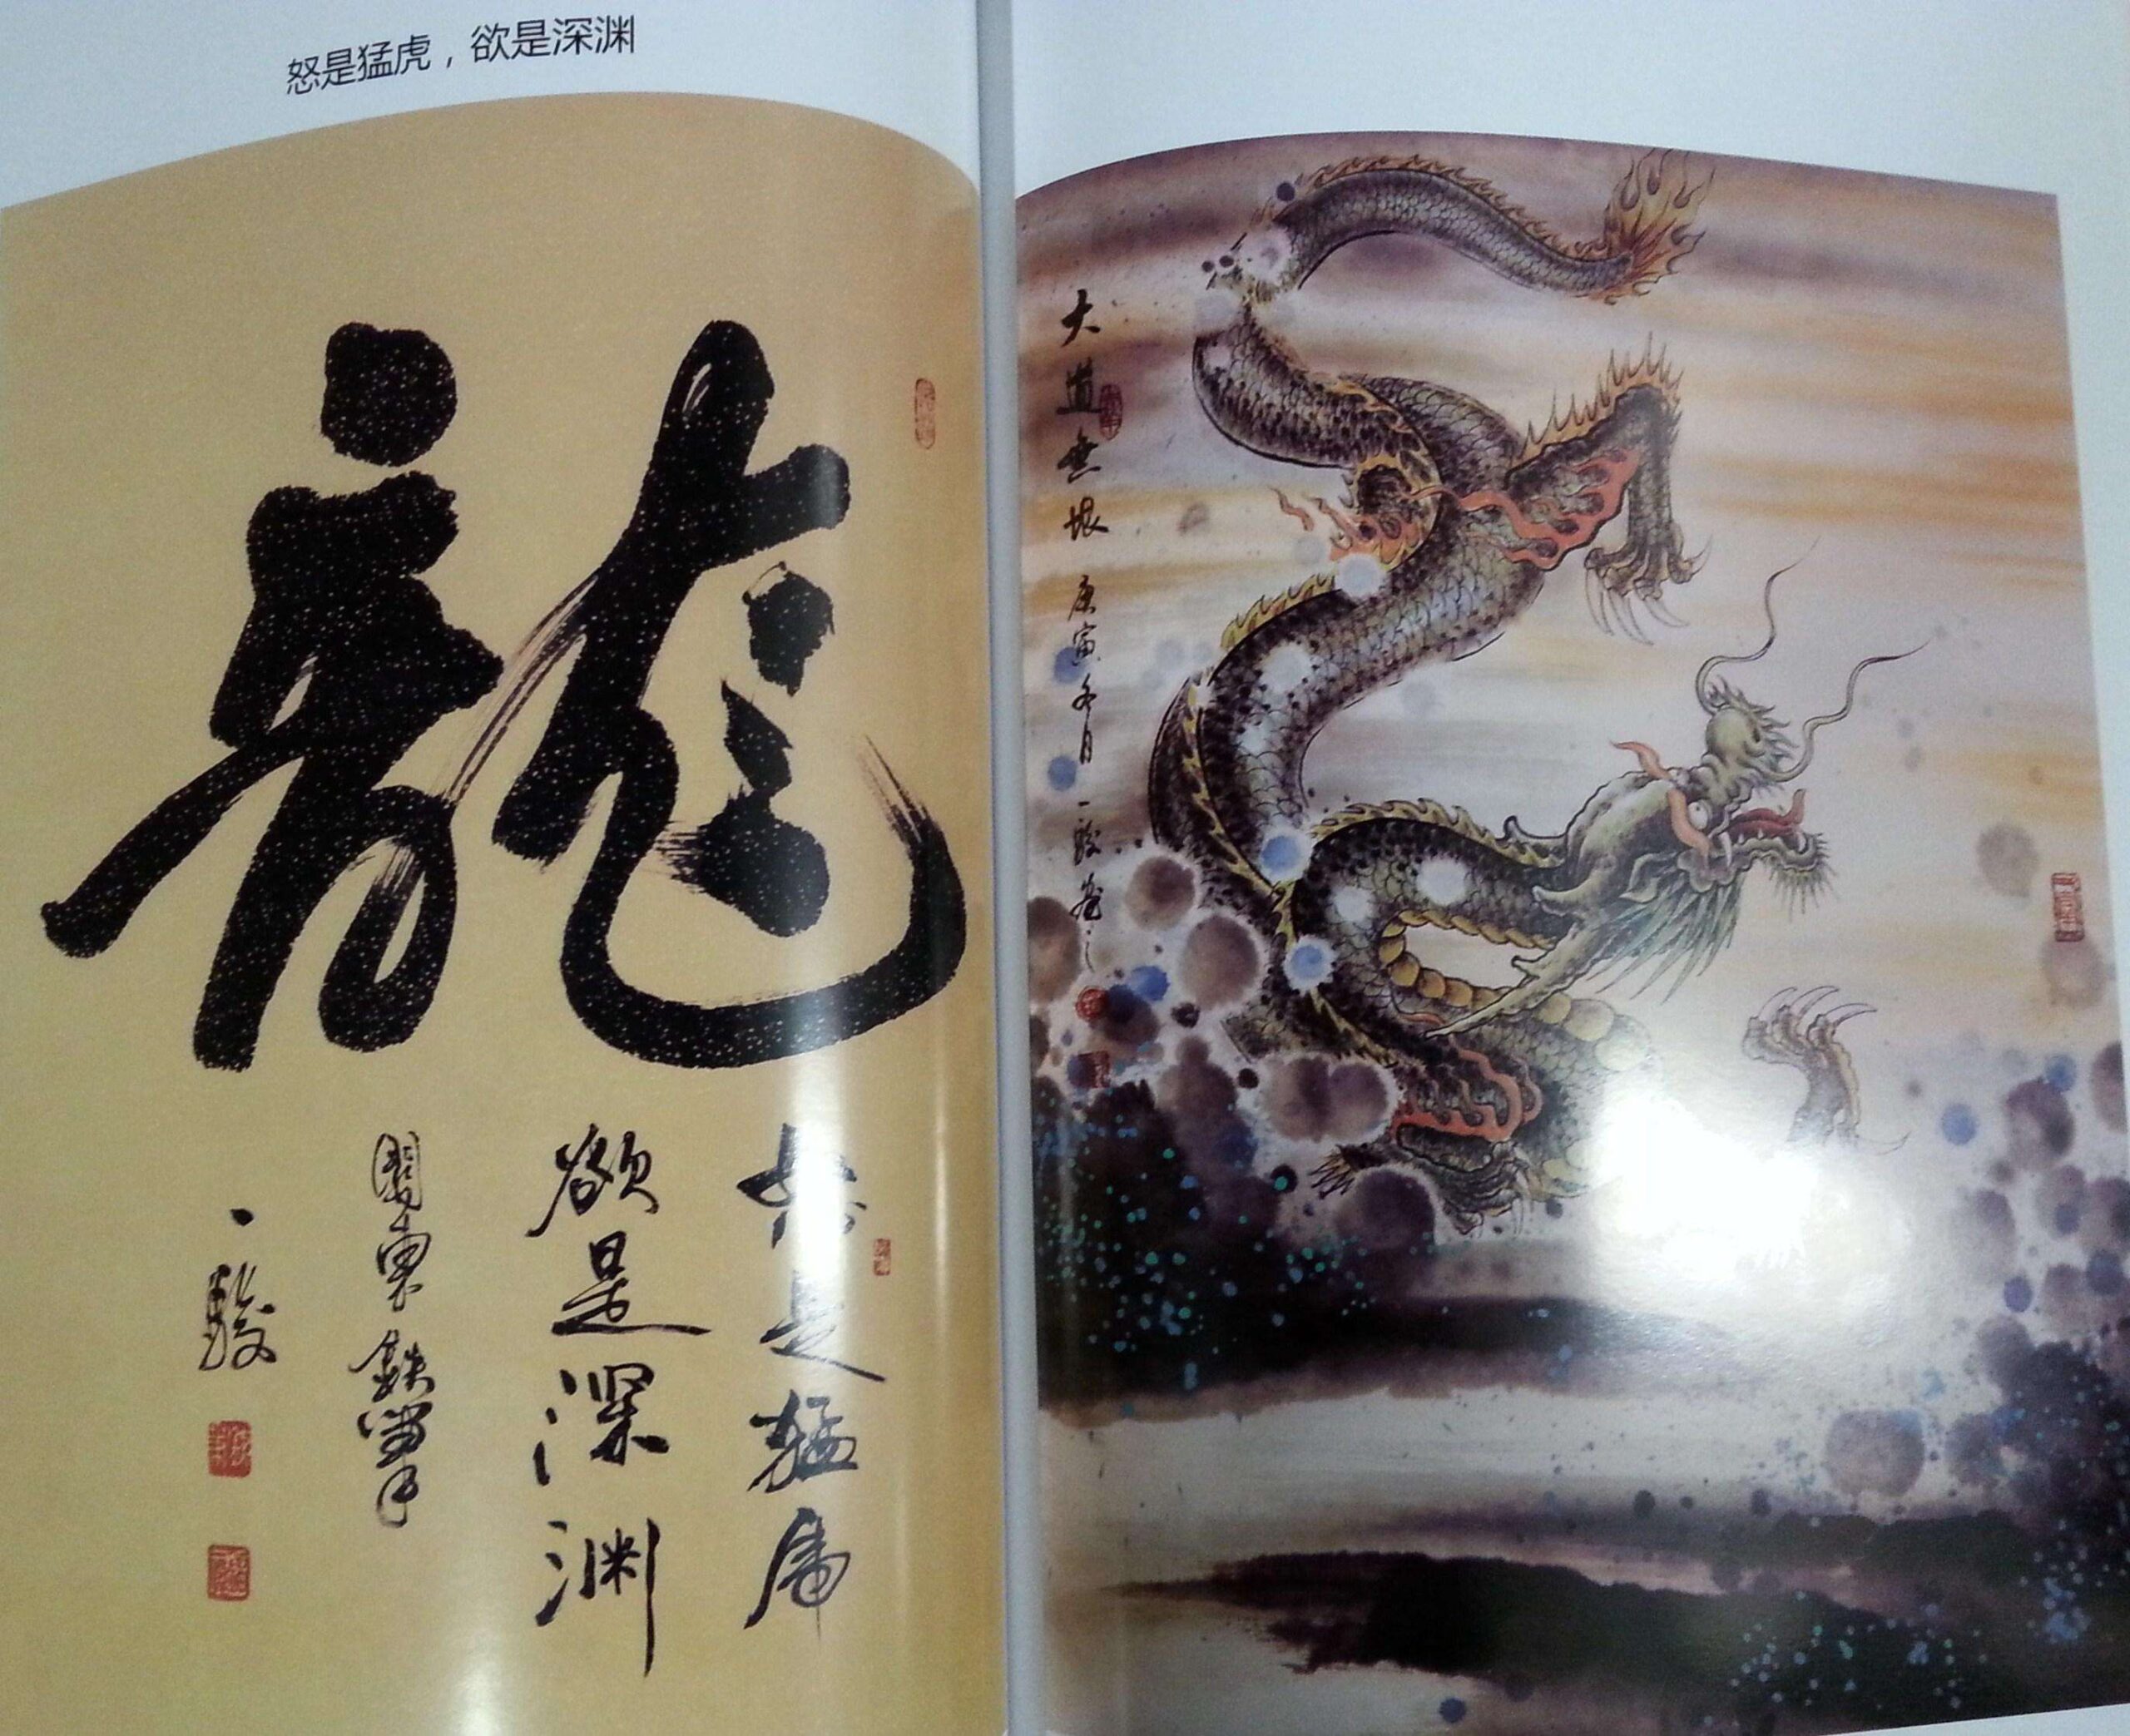 怒是猛虎，欲是深渊
龍
怒是猛虎
欲是深渊
關東鐵筆
一駿
大道無垠 庚寅冬月 一駿篆之